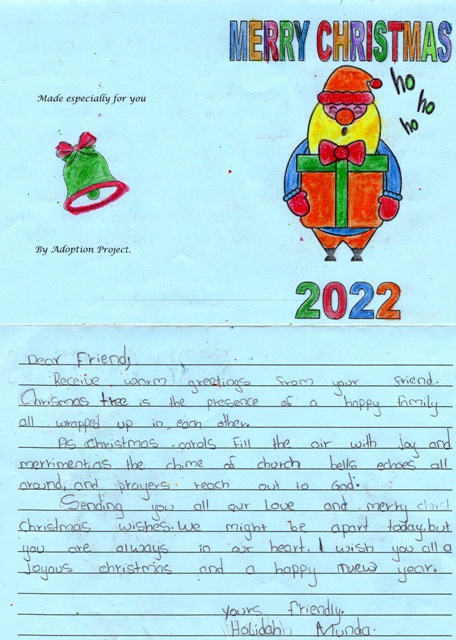 MERRY CHRISTMAS
ho
ho
ho
Made especially for you
By Adoption Project.
2022
Dear Friend,
Receive warm greetings from your friend.
Christmas tree is the presence of a happy family
all wrapped up in each other.
As christmas carols fill the air with joy and
merriment.as the chime of church bells echoes all
around, and prayers reach out to God.
Sending you all our love and merry christ
christmas wishes. We might be apart today, but
you are always in our heart. I wish you all a
Joyous christmas and a happy new year.
yours friendly.
Holidah Munda.